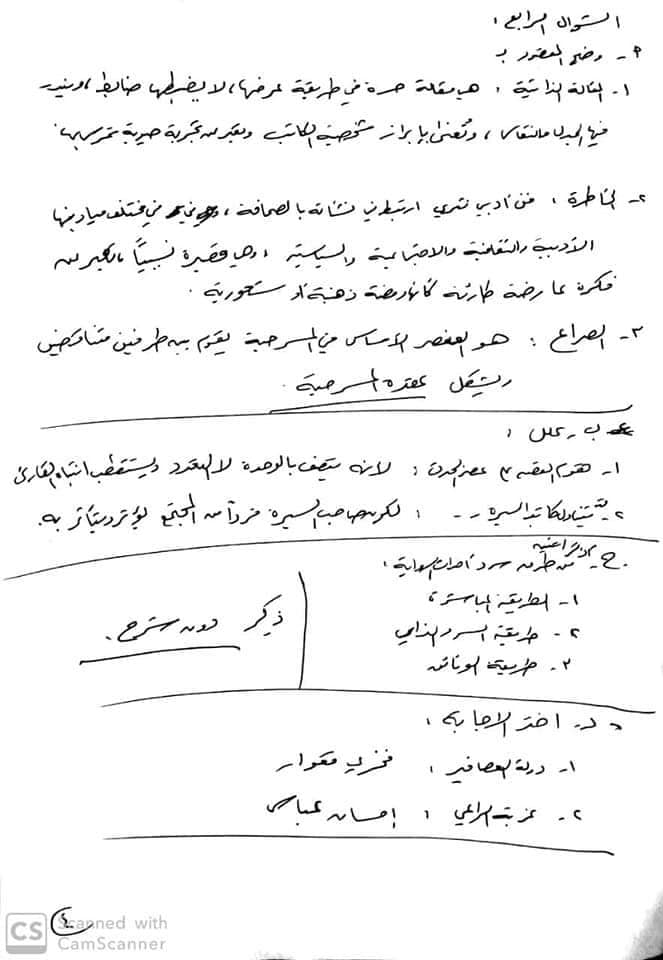 السؤال الرابع :
٩- وضح المقصود بـ
١- المقالة الذاتية : هي مقالة حرة في طريقة عرضها، لا يضبطها ضابط، ويندر
فيها الجدل والنقاش، وتُعنى بإبراز شخصية الكاتب ويعبر عن تجربة حيوية تمرس بها.
٢- الخاطرة : فن أدبي نثري ارتبط في نشأته بالصحافة ، في مختلف ميادينها
الأدبية والثقافية والاجتماعية والسياسية ، وهي قصيرة نسبياً ، تعبر عن
فكرة عارضة طارئة كأنها ومضة ذهنية أو شعورية .
٣- الصراع : هو العنصر الأساس في المسرحية يقوم بين طرفين متناقضين
ويشكل عقدة المسرحية .
ب- علل :
١- تقوم القصة على عنصر الحدث : لأنه يتصف بالوحدة لا التعدد ويستقطب انتباه القارئ
٢- يتناول كاتب السيرة -- : لكون صاحب السيرة فرداً من المجتمع يؤثر ويتأثر به.
ج- من طرق سرد أحداث الرواية :
١- الطريقة المباشرة
٢- طريقة السرد الذاتي
٣- طريقة الوثائق
ذكر دون شرح .
د- اختر الإجابة :
١- دولة العصافير : فخري قعوار
٢- غربة الراعي : إحسان عباس
٤
CS Scanned with
CamScanner